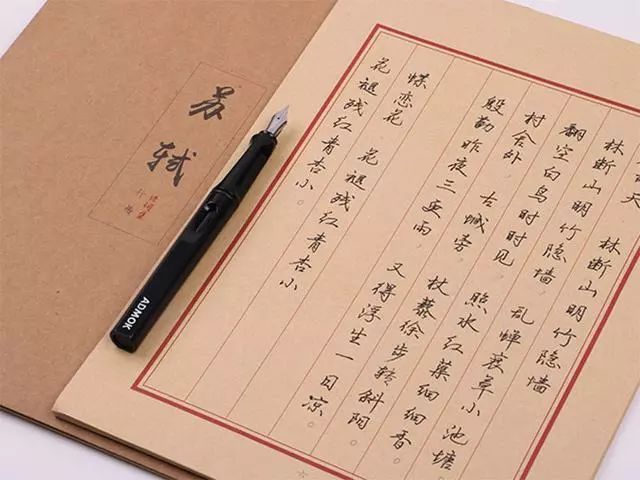 苏轼
诗词集
行书
ADMOK
天 林断山明竹隐墙
林断山明竹隐墙，乱蝉衰草小池塘。
翻空白鸟时时见，照水红蕖细细香。
村舍外，古城旁，杖藜徐步转斜阳。
殷勤昨夜三更雨，又得浮生一日凉。
蝶恋花 花褪残红青杏小
花褪残红青杏小。